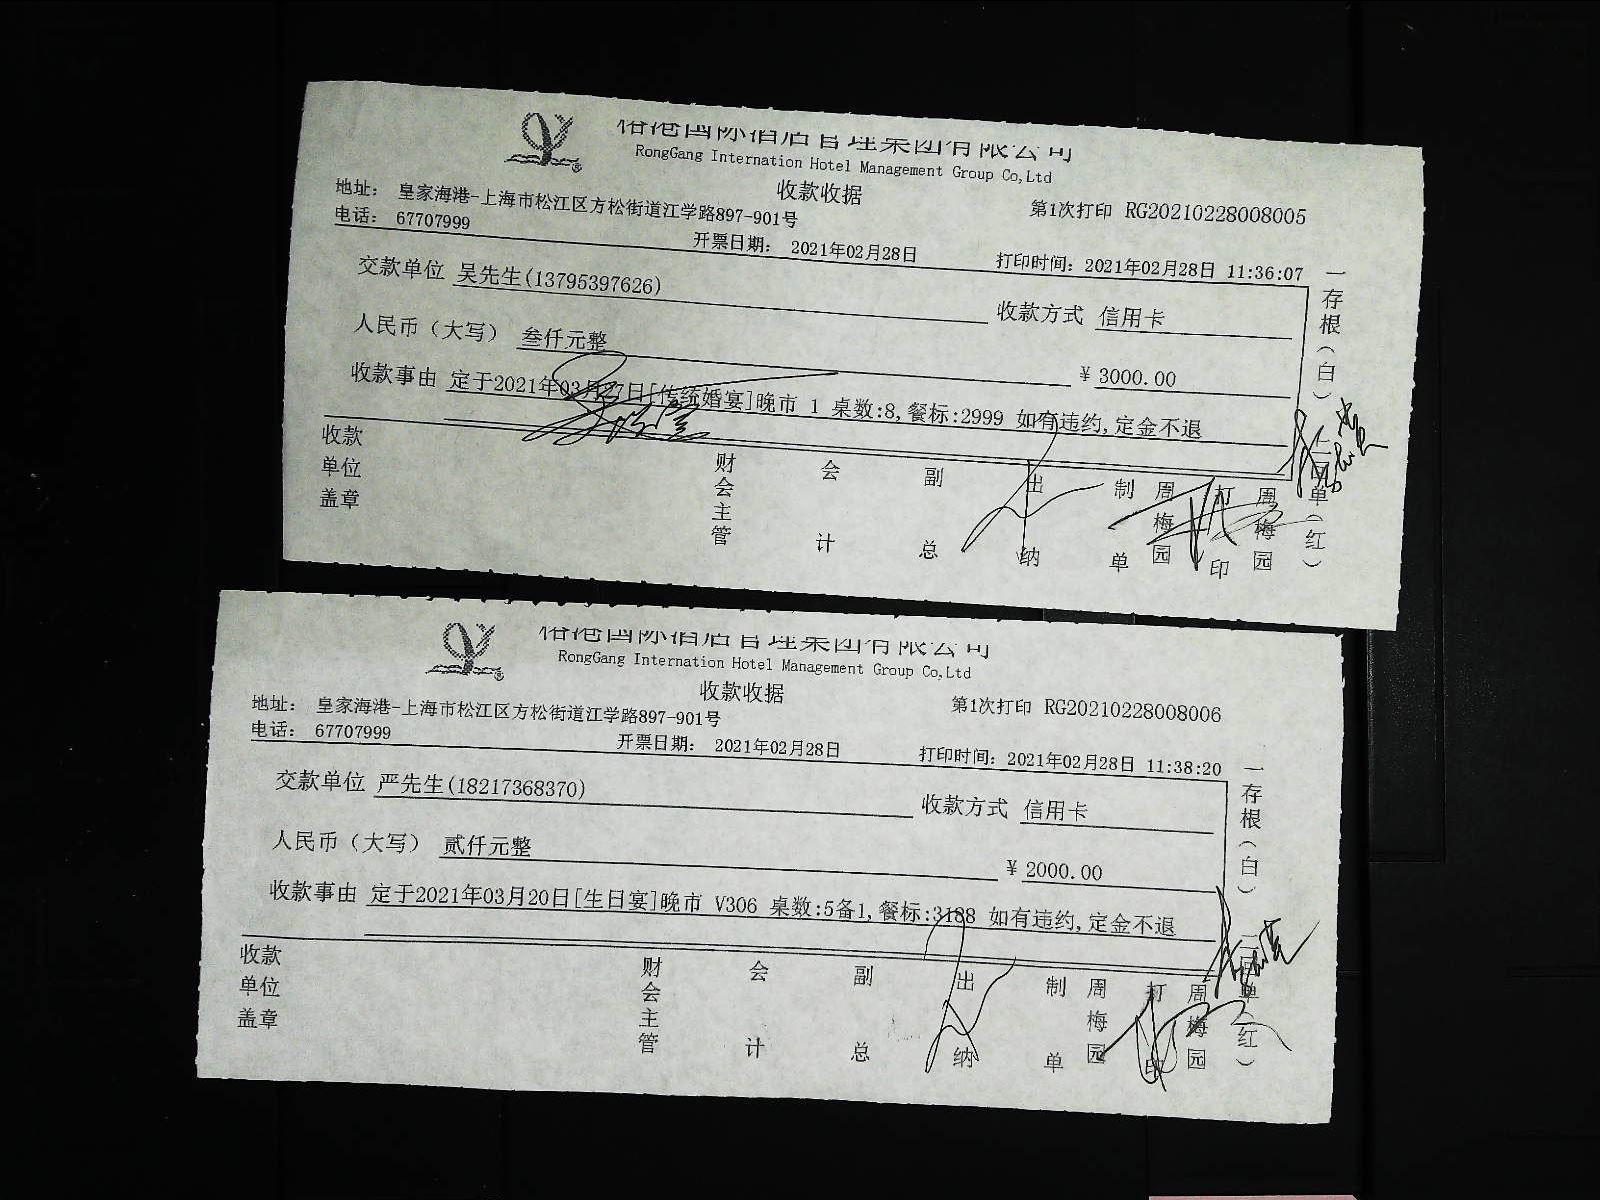 榕港国际酒店管理集团有限公司
RongGang Internation Hotel Management Group Co,Ltd
收款收据
地址： 皇家海港-上海市松江区方松街道江学路897-901号
第1次打印 RG20210228008005
电话： 67707999
开票日期： 2021年02月28日
打印时间：2021年02月28日 11:36:07
交款单位 吴先生(13795397626)
收款方式 信用卡
人民币（大写） 叁仟元整
￥ 3000.00
收款事由 定于2021年03月27日[传统婚宴]晚市 1 桌数:8,餐标:2999 如有违约,定金不退
收款单位盖章
财会主管
会计
副总
出纳
制单
周梅园
打印
周梅园
一存根（白）二回单（红）
榕港国际酒店管理集团有限公司
RongGang Internation Hotel Management Group Co,Ltd
收款收据
地址： 皇家海港-上海市松江区方松街道江学路897-901号
第1次打印 RG20210228008006
电话： 67707999
开票日期： 2021年02月28日
打印时间：2021年02月28日 11:38:20
交款单位 严先生(18217368370)
收款方式 信用卡
人民币（大写） 贰仟元整
￥ 2000.00
收款事由 定于2021年03月20日[生日宴]晚市 V306 桌数:5备1,餐标:3188 如有违约,定金不退
收款单位盖章
财会主管
会计
副总
出纳
制单
周梅园
打印
周梅园
一存根（白）二回单（红）